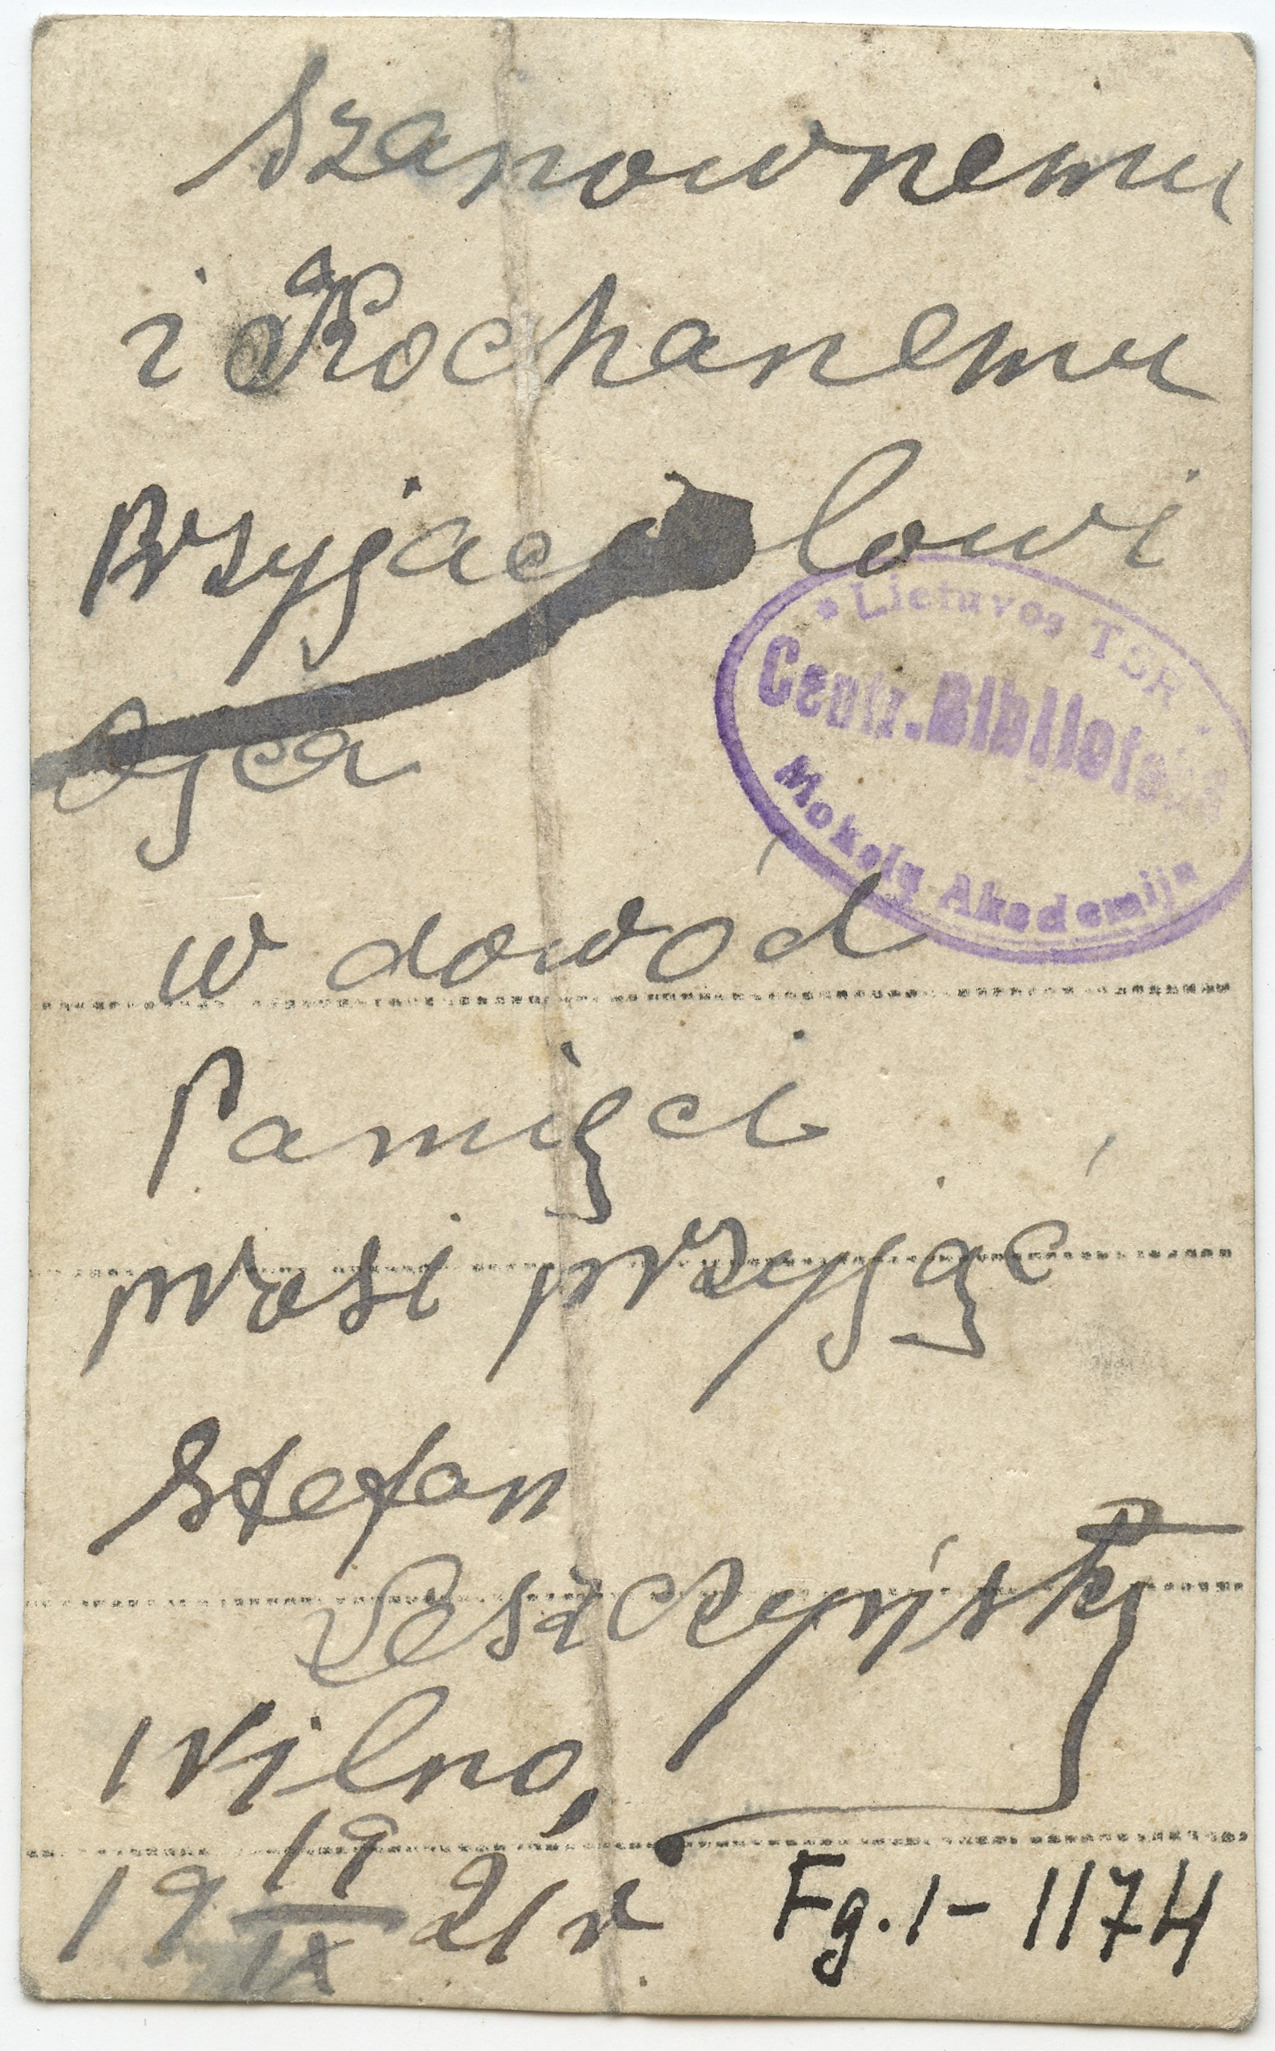 Szanownemu
i Kochanemu
Przyjacielowi
Ojca
w dowód
Pamięci
prosi przyjąć
Stefan
Leszczyński
Wilno,
19 19/IX 21 r
Fg. 1 - 1174
* Lietuvos TSR *
Centr. Biblioteka
Mokslų Akademija